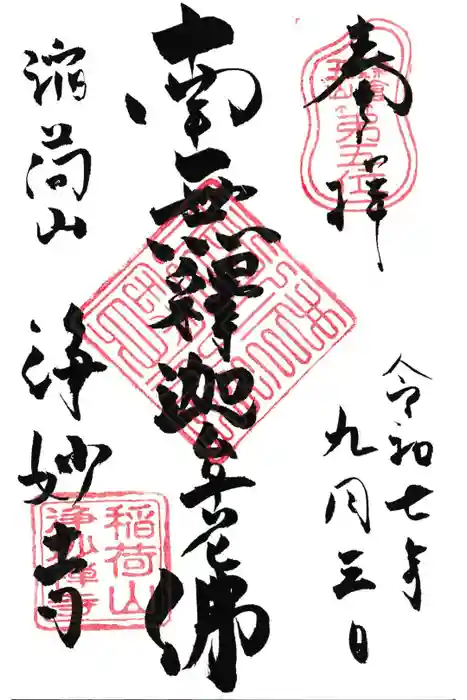 奉拝
鎌倉
五山
第五位
令和七年
九月三日
南無釋迦牟尼佛
稲荷山
浄妙寺
稲荷山
浄妙禅寺